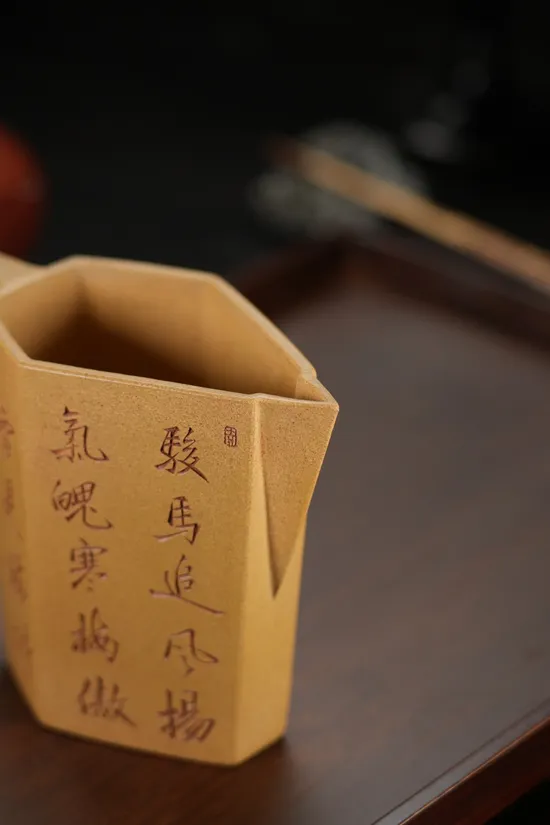 駿馬追風揚
氣魄寒梅傲